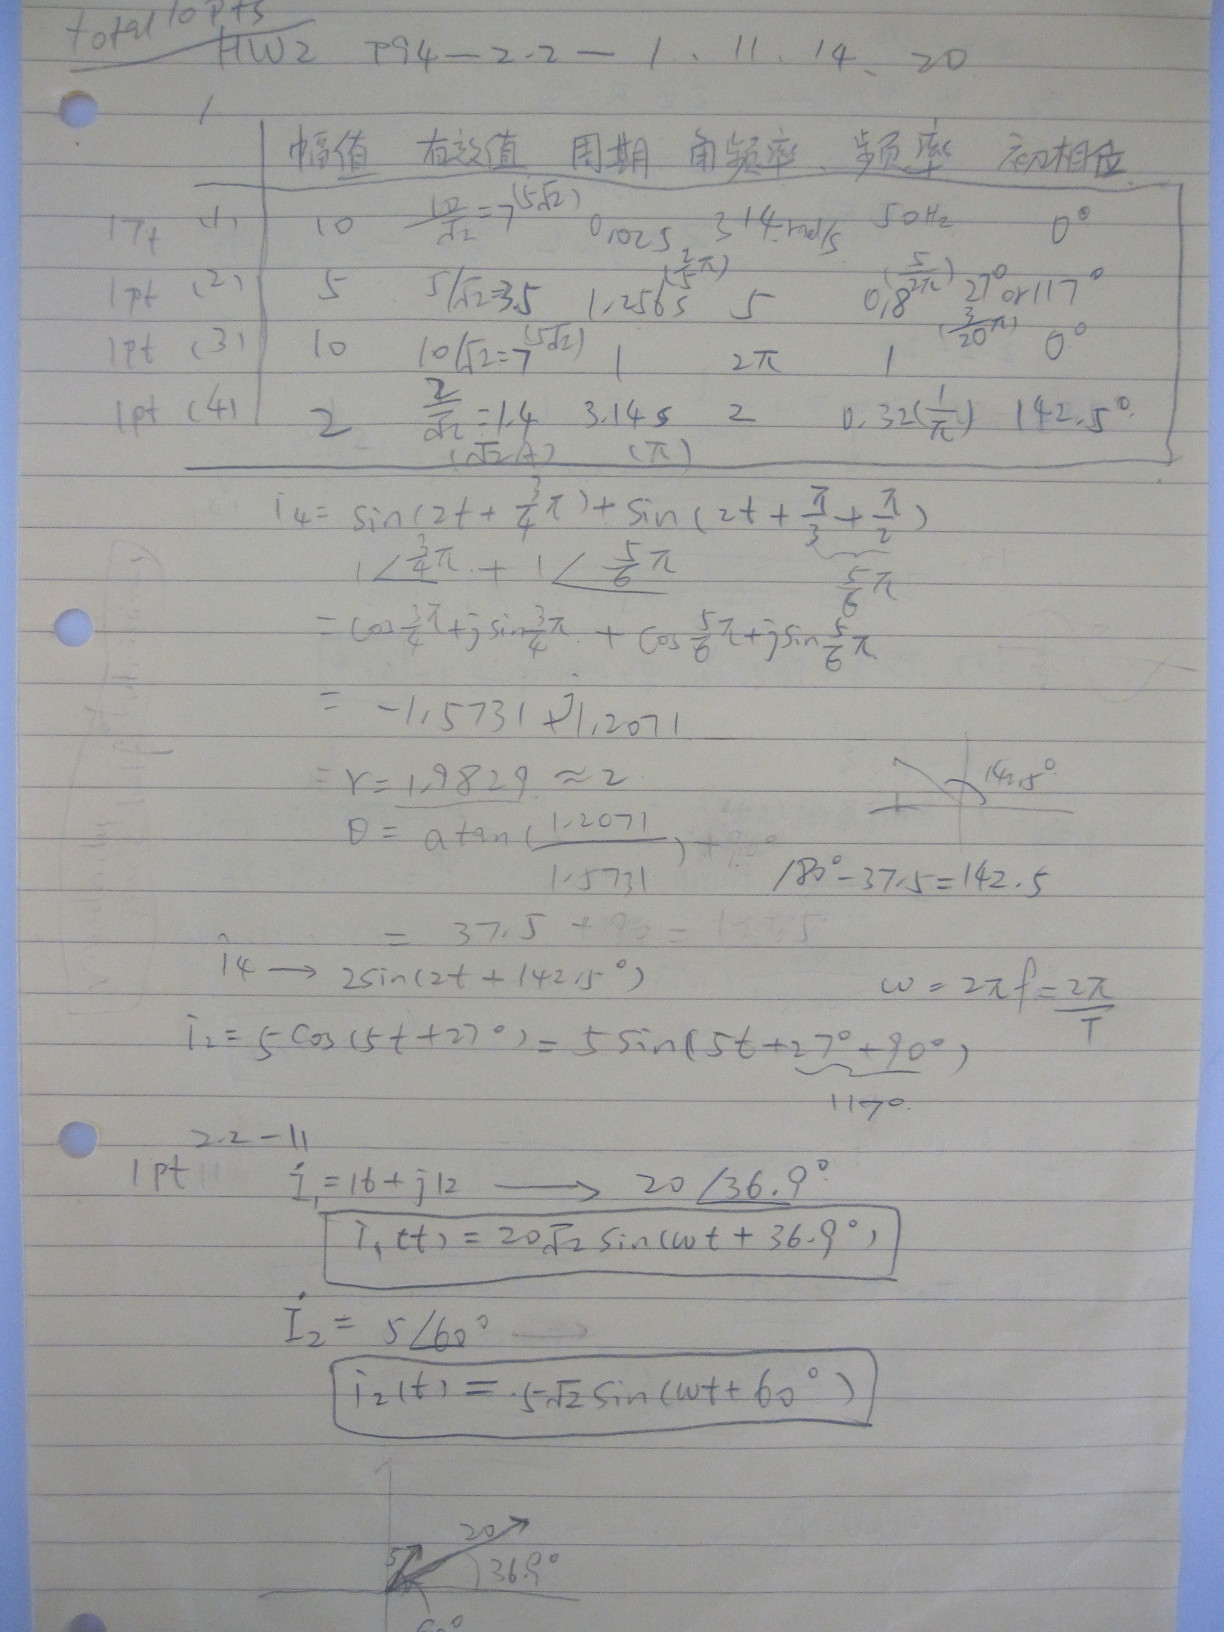 total 10pts
HW2 P94-2.2-1、11、14、20
1
幅值 有效值 周期 角频率 频率 初相位
1pt (1) 10 10/√2=7(5√2) 0.02s 314rad/s 50Hz 0°
1pt (2) 5 5/√2=3.5 1.256s(2/5π) 5 0.8(5/2π) 27°or117°(3/20π)
1pt (3) 10 10/√2=7(5√2) 1 2π 1 0°
1pt (4) 2 2/√2=1.4(√2A) 3.14s(π) 2 0.32(1/π) 142.5°
i4= sin(2t+3/4π)+sin(2t+π/3+π/2)
1∠3/4π + 1∠5/6π 5/6π
=cos3/4π+jsin3/4π + cos5/6π+jsin5/6π
= -1.5731+j1.2071
=r=1.9829≈2
142.5°
θ= atan(1.2071/1.5731)
180°-37.5=142.5
= 37.5
i4→2sin(2t+142.5°)
ω=2πf=2π/T
i2=5cos(5t+27°)=5sin(5t+27°+90°)
117°
2.2-11
1pt İ1=16+j12 → 20∠36.9°
i1(t)=20√2sin(ωt+36.9°)
İ2= 5∠60°
i2(t)=5√2sin(ωt+60°)
20
5
36.9°
60°